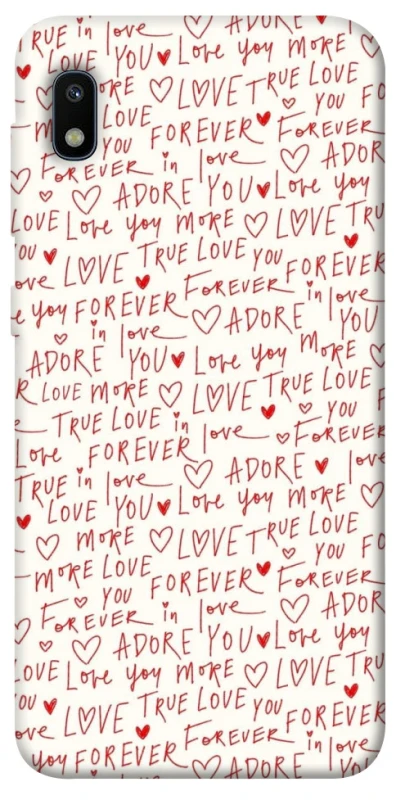 TRUE in love
LOVE YOU Love you MORE
MORE LOVE TRUE LOVE
MORE LOVE YOU
FOREVER FOREVER
FOREVER in love ADOR
ADORE YOU Love you
LOVE Love you MORE LOVE TRU
YOU TRUE LOVE YOU
ove LOVE FOREVER
e you FOREVER FOREVER in love
in love ADORE YOU
ADORE YOU Love you MORE
R LOVE MORE LOVE TRUE LOVE
TRUE LOVE in love YOU
Love FOREVER FOREVER
TRUE in love ADORE love
LOVE YOU Love you MORE
MORE LOVE TRUE LOVE
MORE LOVE YOU FO
FOREVER FOREVER
FOREVER in love ADOR
ADORE YOU Love you
LOVE Love you MORE LOVE TRU
YOU TRUE LOVE YOU
ove LOVE FOREVER
you FOREVER FOREVER in love
in love ADORE YOU